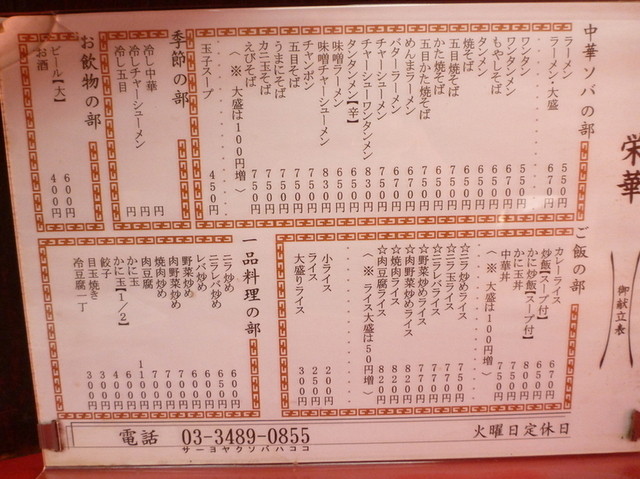 栄華
御献立表
中華ソバの部
ラーメン 550円
ラーメン・大盛 670円
ワンタン 550円
ワンタンメン 670円
もやしそば 650円
タンメン 650円
焼そば 650円
五目焼そば 750円
かた焼そば 650円
五目かた焼そば 750円
めんまラーメン 670円
バターラーメン 670円
チャーシューメン 750円
チャーシューワンタンメン 830円
タンタンメン【辛】 650円
味噌ラーメン 650円
味噌チャーシューメン 830円
チャンポン 750円
五目そば 750円
うまにそば 750円
カニ玉そば 750円
えびそば 750円
(※ 大盛は100円増)
玉子スープ 450円
季節の部
冷し中華 円
冷しチャーシューメン 円
冷し五目 円
お飲物の部
ビール【大】 600円
お酒 400円
ご飯の部
カレーライス 670円
炒飯【スープ付】 650円
かに炒飯【スープ付】
かに玉丼 750円
中華丼 750円
(※ 大盛は100円増)
☆ニラ炒めライス 750円
☆ニラ玉ライス 770円
☆ニラレバライス 770円
☆野菜炒めライス 770円
☆肉野菜炒めライス 820円
☆焼肉ライス 820円
☆肉豆腐ライス 820円
(※ ライス大盛は50円増)
小ライス 200円
ライス 250円
大盛りライス 300円
一品料理の部
ニラ炒め 600円
ニラレバ炒め 650円
レバ炒め 600円
野菜炒め 600円
肉野菜炒め 700円
焼肉炒め 700円
肉豆腐 700円
かに玉 1100円
かに玉【1/2】 600円
餃子 400円
目玉焼き 300円
冷豆腐一丁 300円
電話 03-3489-0855
サーヨヤクソバハココ
火曜日定休日